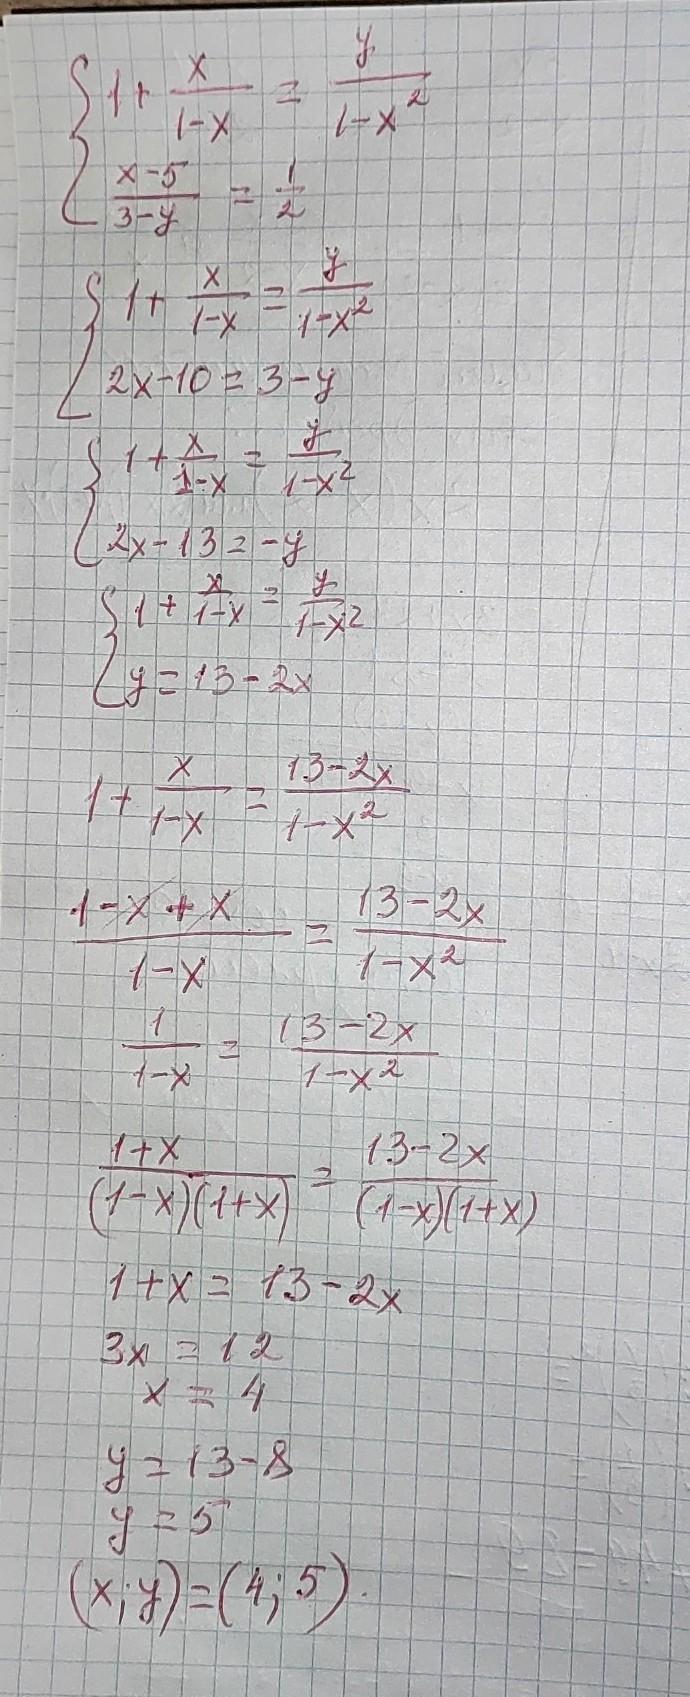 { 1 + x/(1-x) = y/(1-x²)
(x-5)/(3-y) = 1/2
{ 1 + x/(1-x) = y/(1-x²)
2x-10 = 3-y
{ 1 + x/(1-x) = y/(1-x²)
2x-13 = -y
{ 1 + x/(1-x) = y/(1-x²)
y = 13-2x
1 + x/(1-x) = (13-2x)/(1-x²)
(1-x+x)/(1-x) = (13-2x)/(1-x²)
1/(1-x) = (13-2x)/(1-x²)
(1+x)/((1-x)(1+x)) = (13-2x)/((1-x)(1+x))
1+x = 13-2x
3x = 12
x = 4
y = 13-8
y = 5
(x; y) = (4; 5).